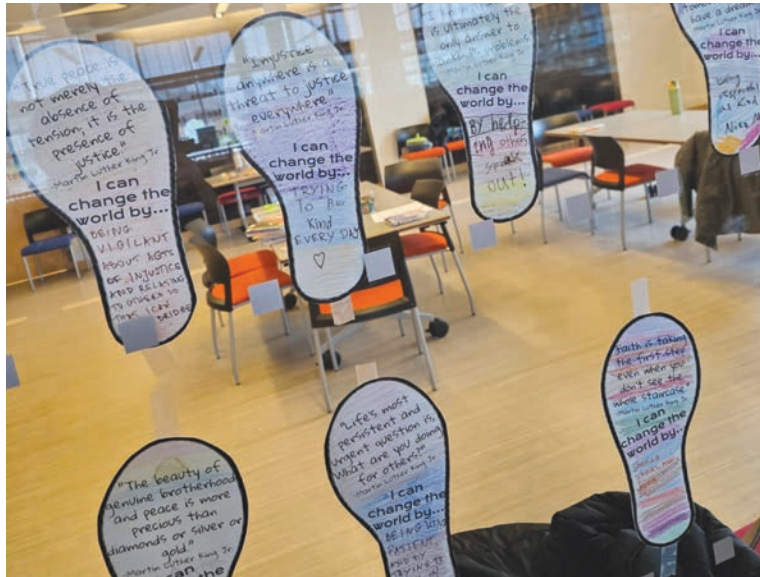 "True peace is
not merely the
absence of
tension, it is the
presence of
justice."
Martin Luther King Jr
I can
change the
world by...
BEING
VIGILANT
ABOUT ACTS
OF INJUSTICE
AND RELATING
TO OTHERS SO
THAT I CAN
BRIDGE
"Injustice
anywhere is a
threat to justice
everywhere"
Martin Luther King Jr.
I can
change the
world by...
TRYING
TO BE
Kind
EVERY DAY
is ultimately the
only answer to
problems
Martin Luther King Jr
I can
change the
world by...
By help-
ing others
speak
out!
have a dream
Martin Luther King Jr
I can
change the
world by...
being
as Kind
"The beauty of
genuine brotherhood
and peace is more
precious than
diamonds or silver or
gold."
Martin Luther King Jr.
I can
change the
"Life's most
persistent and
urgent question is,
What are you doing
for others?"
Martin Luther King Jr
"I can
change the
world by...
BEING KIND
PATIENT,
AND BY
TRYING TO
Faith is taking
the first step
even when you
don't see the
whose staircase."
Martin Luther King Jr
I can
change the
world by...